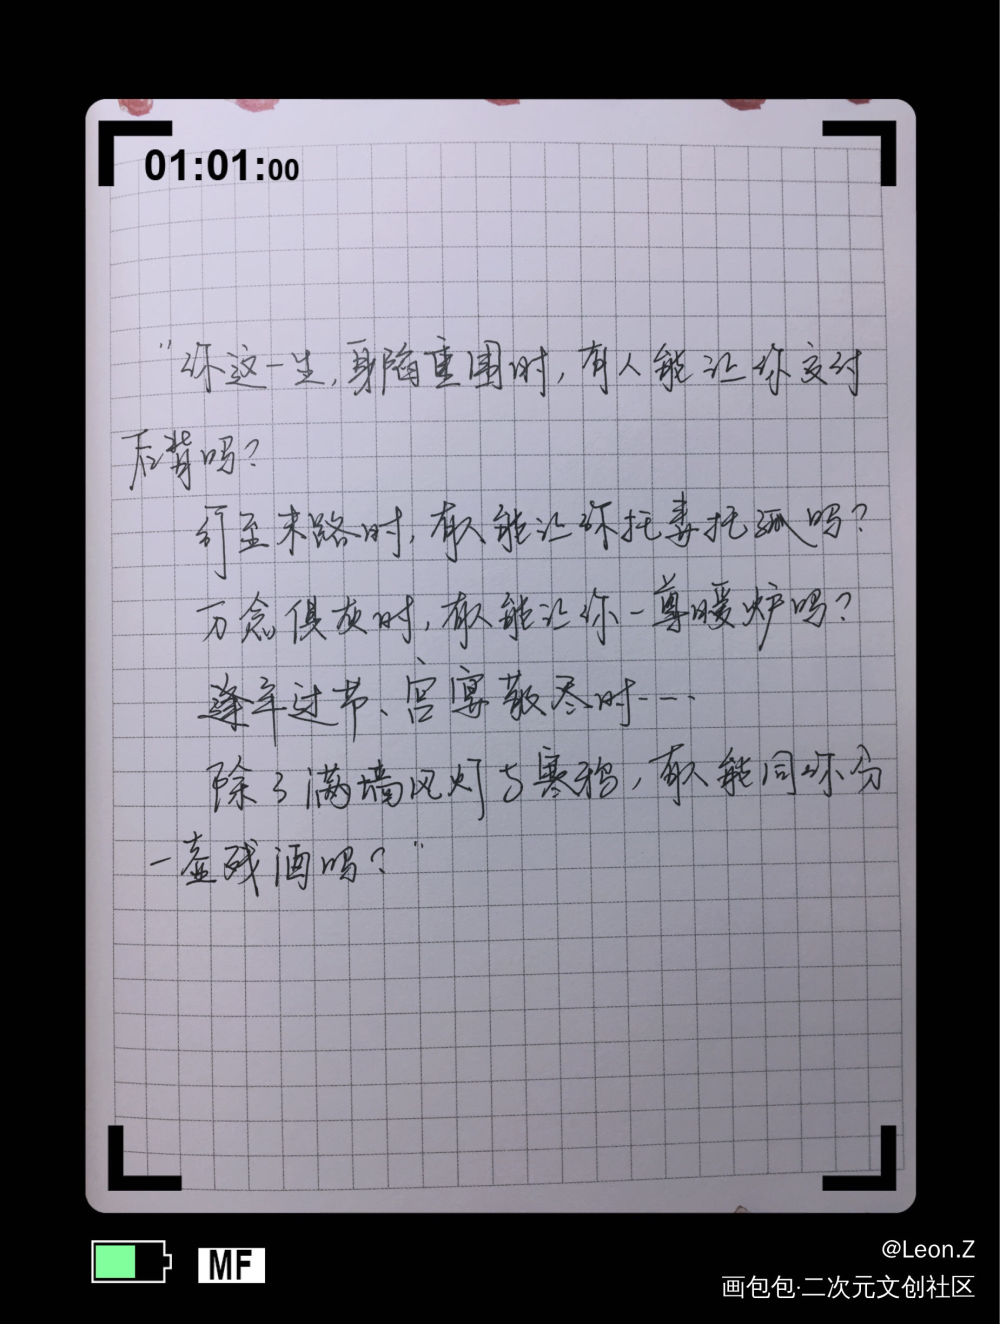 01:01:00
“你这一生，身陷重围时，有人能让你交付
后背吗？
行至末路时，有人能让你托妻托孤吗？
万念俱灰时，有人能让你一尊暖炉吗？
逢年过节、宫宴散尽时……
除了满墙风灯与寒鸦，有人能同你分
一壶残酒吗？”
MF
@Leon.Z
画包包·二次元文创社区